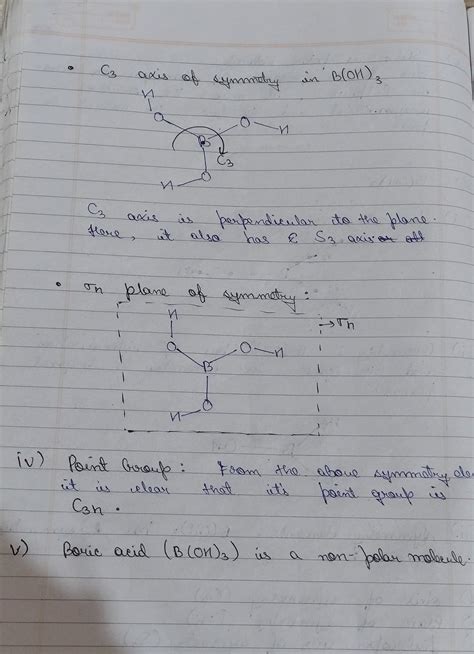 • C3 axis of symmetry in B(OH)3
H
O
B
O
H
C3
O
H
C3 axis is perpendicular to the plane.
Here, it also has E S3 axis
• σh plane of symmetry:
→σh
H
O
B
O
H
O
H
iv) Point Group: From the above symmetry ele
it is clear that it's point group is
C3h.
v) Boric acid (B(OH)3) is a non-polar molecule.